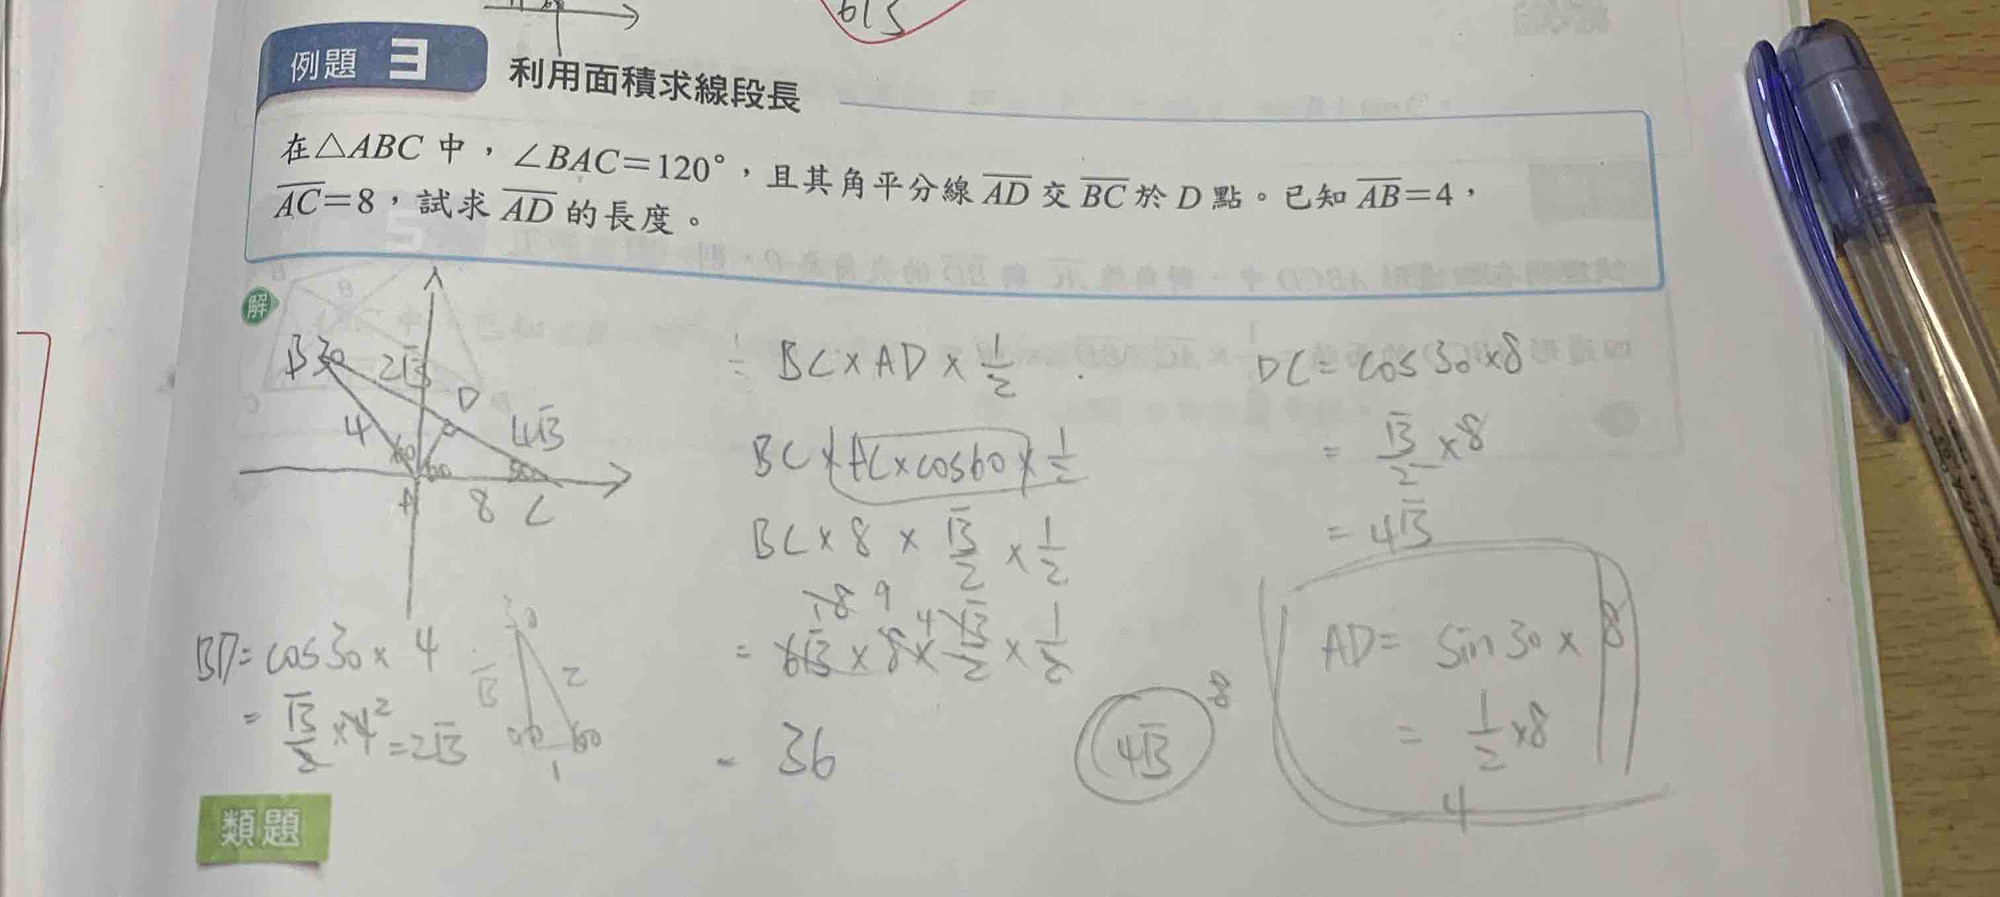 615
例題 3 利用面積求線段長
在△ABC 中，∠BAC=120°，且其角平分線 AD 交 BC 於 D 點。已知 AB=4，
AC=8，試求 AD 的長度。
解
B 30 2√3 D
4 4√3
60 60 30
A 8 C
= BC×AD×1/2
BC×AC×cos60×1/2
BC×8×√3/2×1/2
18 9 4
= 6√3×8×√3/2×1/2
= 36
DC= cos30×8
= √3/2×8
= 4√3
BD= cos30×4
= √3/2×4 2 =2√3
30
√3 2
90 60
1
4√3
8
AD= sin30×8
= 1/2×8
4
類題